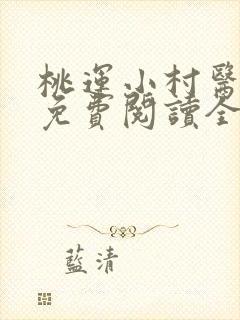 桃運小村醫
免費閱讀全
藍清